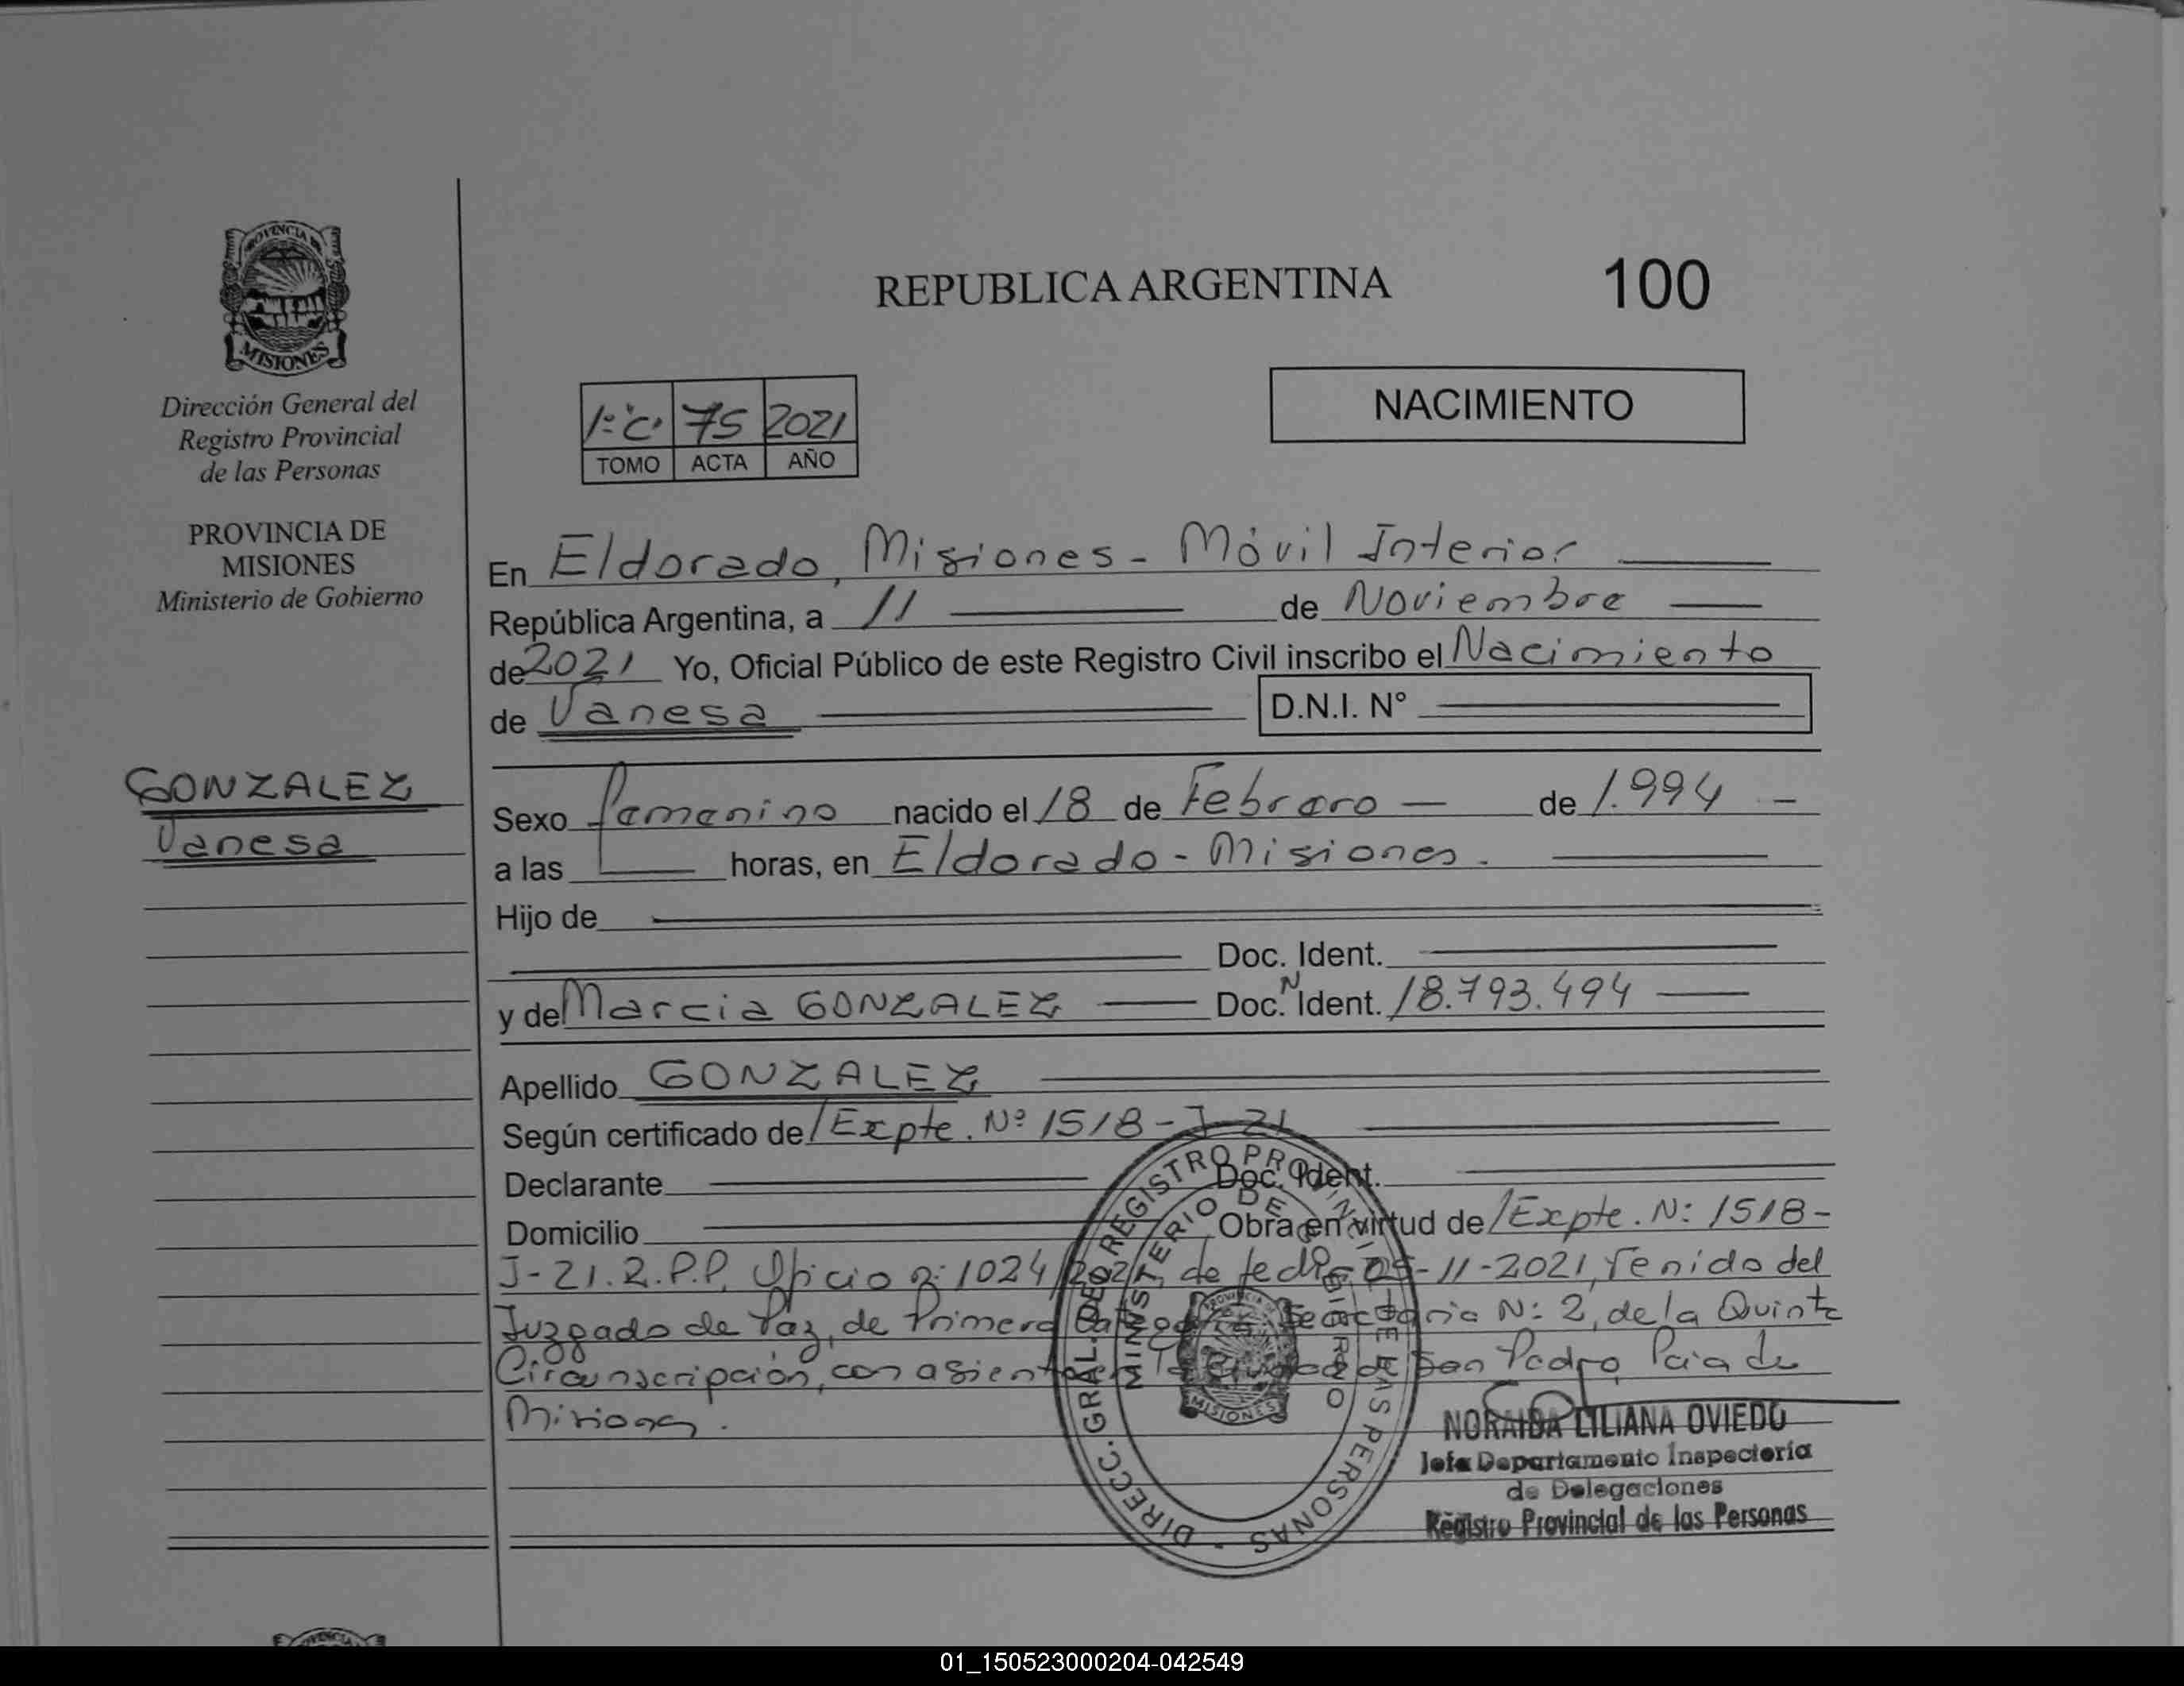 PROVINCIA DE
MISIONES
Dirección General del
Registro Provincial
de las Personas
PROVINCIA DE
MISIONES
Ministerio de Gobierno
GONZALEZ
Vanesa
REPUBLICA ARGENTINA
100
NACIMIENTO
1:"C" 75 2021
TOMO ACTA AÑO
En Eldorado, Misiones - Móvil Interior
República Argentina, a 11 de Noviembre
de 2021 Yo, Oficial Público de este Registro Civil inscribo el Nacimiento
de Vanesa D.N.I. N°
Sexo Femenino nacido el 18 de Febrero de 1.994
a las horas, en Eldorado - Misiones.
Hijo de
Doc. Ident.
y de Marcia GONZALEZ Doc. N Ident. 18.793.494
Apellido GONZALEZ
Según certificado de/Expte. Nº 1518-J-21
Declarante Doc. Ident.
Domicilio Obra en virtud de/Expte. N: 1518-
J-21.R.P.P, Oficio n: 1024/2021, de fecha 05-11-2021, venido del
Juzgado de Paz, de Primera Categoría Secretaria N: 2, de la Quinta
Circunscripción, con asiento en la Ciudad de San Pedro, Pcia de
Misiones.
DIRECC. GRAL. DEL REGISTRO PROVINCIAL DE LAS PERSONAS
MINISTERIO DE GOBIERNO
PROVINCIA DE
MISIONES
NORAIDA LILIANA OVIEDO
Jefa Departamento Inspectoría
de Delegaciones
Registro Provincial de las Personas
01_150523000204-042549